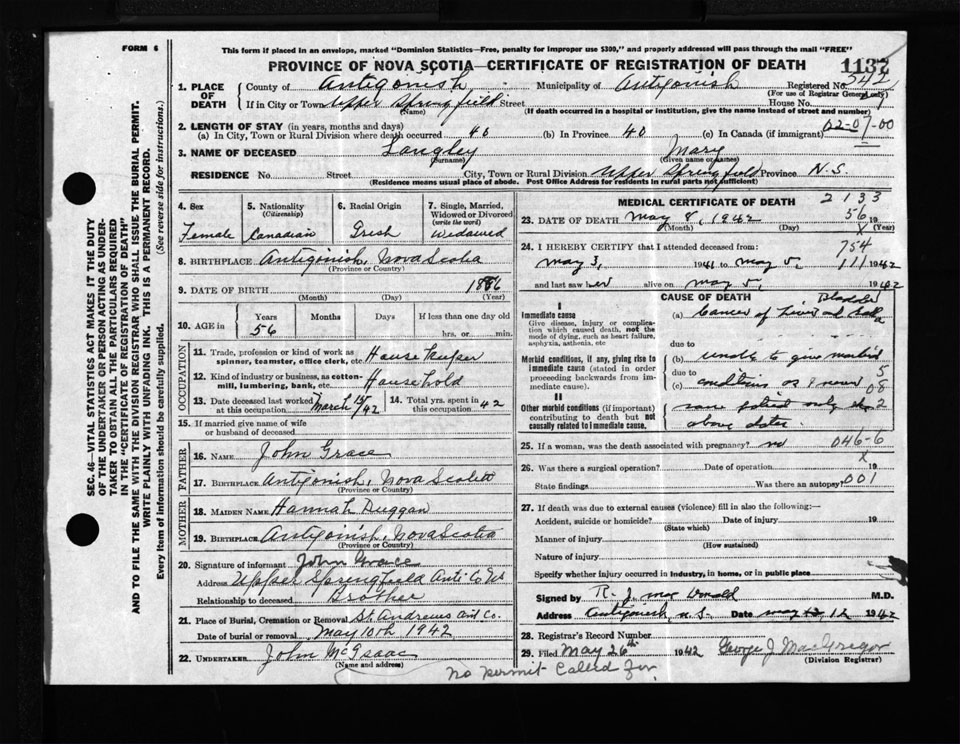 FORM 6
This form if placed in an envelope, marked "Dominion Statistics—Free, penalty for improper use $300," and properly addressed will pass through the mail "FREE"
PROVINCE OF NOVA SCOTIA—CERTIFICATE OF REGISTRATION OF DEATH
1137
1. PLACE OF DEATH
County of Antigonish, Municipality of Antigonish Registered No. 544
(For use of Registrar General only)
If in City or Town Upper Springfield Street House No.
(Name) (If death occurred in a hospital or institution, give the name instead of street and number)
2. LENGTH OF STAY (in years, months and days)
(a) In City, Town or Rural Division where death occurred 40 (b) In Province 40 (c) In Canada (if immigrant) 02-07-00
3. NAME OF DECEASED Langley Mary
(Surname) (Given name or names)
RESIDENCE No. Street City, Town or Rural Division Upper Springfield Province N.S.
(Residence means usual place of abode. Post Office Address for residents in rural parts not sufficient)
4. Sex
Female
5. Nationality
(Citizenship)
Canadian
6. Racial Origin
Irish
7. Single, Married, Widowed or Divorced
(write the word)
Widowed
8. BIRTHPLACE Antigonish, Nova Scotia
(Province or Country)
9. DATE OF BIRTH 1886
(Month) (Day) (Year)
10. AGE in
Years Months Days If less than one day old
56 hrs. or min.
OCCUPATION
11. Trade, profession or kind of work as House Keeper
spinner, teamster, office clerk, etc.
12. Kind of industry or business, as cotton-
mill, lumbering, bank, etc. House hold
13. Date deceased last worked March 15/42
at this occupation
14. Total yrs. spent in 42
this occupation
15. If married give name of wife
or husband of deceased
FATHER
16. NAME John Grace
17. BIRTHPLACE Antigonish, Nova Scotia
(Province or Country)
MOTHER
18. MAIDEN NAME Hannah Duggan
19. BIRTHPLACE Antigonish, Nova Scotia
(Province or Country)
20. Signature of informant John Grace
Address Upper Springfield Anti Co NS
Relationship to deceased Brother
21. Place of Burial, Cremation or Removal St. Andrews Ant Co.
Date of burial or removal May 10th 1942
22. UNDERTAKER John McIsaac
(Name and address)
No permit Called for
MEDICAL CERTIFICATE OF DEATH
2133
23. DATE OF DEATH May 8, 1942 56 19
(Month) (Day) X (Year)
24. I HEREBY CERTIFY that I attended deceased from: 754
May 3, 1941 to May 5, 111 1942
and last saw her alive on May 5, 1942
CAUSE OF DEATH
I
Immediate cause
Give disease, injury or complication which caused death, not the mode of dying, such as heart failure, asphyxia, asthenia, etc
Morbid conditions, if any, giving rise to immediate cause (stated in order proceeding backwards from immediate cause).
II
Other morbid conditions (if important) contributing to death but not causally related to immediate cause.
Bladder
(a) Cancer of Liver and Gall
due to
(b) unable to give morbid
due to 5
(c) conditions as I never 08
saw patient only the 2
above dates.
25. If a woman, was the death associated with pregnancy? no 046-6
X
26. Was there a surgical operation? Date of operation 19
State findings Was there an autopsy? 001
27. If death was due to external causes (violence) fill in also the following:—
Accident, suicide or homicide? Date of injury 19
(State which)
Manner of injury
(How sustained)
Nature of injury
Specify whether injury occurred in industry, in home, or in public place
Signed by R. J. MacDonald M.D.
Address Antigonish N.S. Date May 12 1942
28. Registrar's Record Number
29. Filed May 26th 1942 George J. MacGregor
(Division Registrar)
SEC. 46—VITAL STATISTICS ACT MAKES IT THE DUTY
OF THE UNDERTAKER OR PERSON ACTING AS UNDER-
TAKER TO OBTAIN ALL THE PARTICULARS REQUIRED
IN THE "CERTIFICATE OF REGISTRATION OF DEATH"
AND TO FILE THE SAME WITH THE DIVISION REGISTRAR WHO SHALL ISSUE THE BURIAL PERMIT.
WRITE PLAINLY WITH UNFADING INK. THIS IS A PERMANENT RECORD.
Every item of information should be carefully supplied. (See reverse side for instructions.)